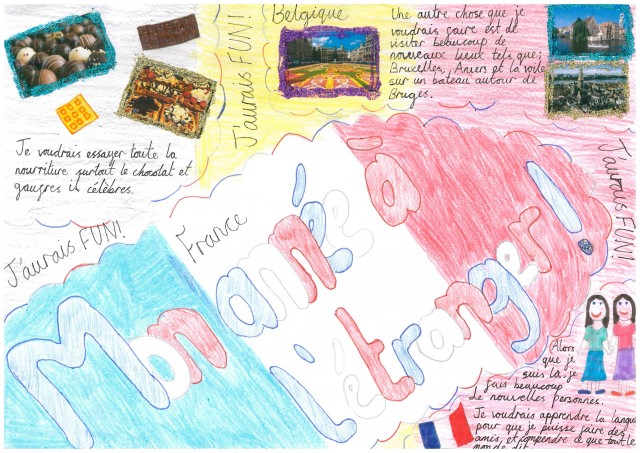 Belgique
J'aurais FUN!
Une autre chose que je
voudrais faire est de
visiter beaucoup de
nouveaux lieux tels que;
Bruxelles, Anvers et la voile
sur un bateau autour de
Bruges.
Je voudrais essayer toute la
nourriture surtout le chocolat et
gaufres in célèbres.
J'aurais FUN!
France
J'aurais FUN!
Mon année à
l'étranger!
Alors
que je
suis là, je
fais beaucoup
de nouvelles personnes.
Je voudrais apprendre la langue
pour que je puisse faire des
amis, et comprendre ce que tout le
monde dit.